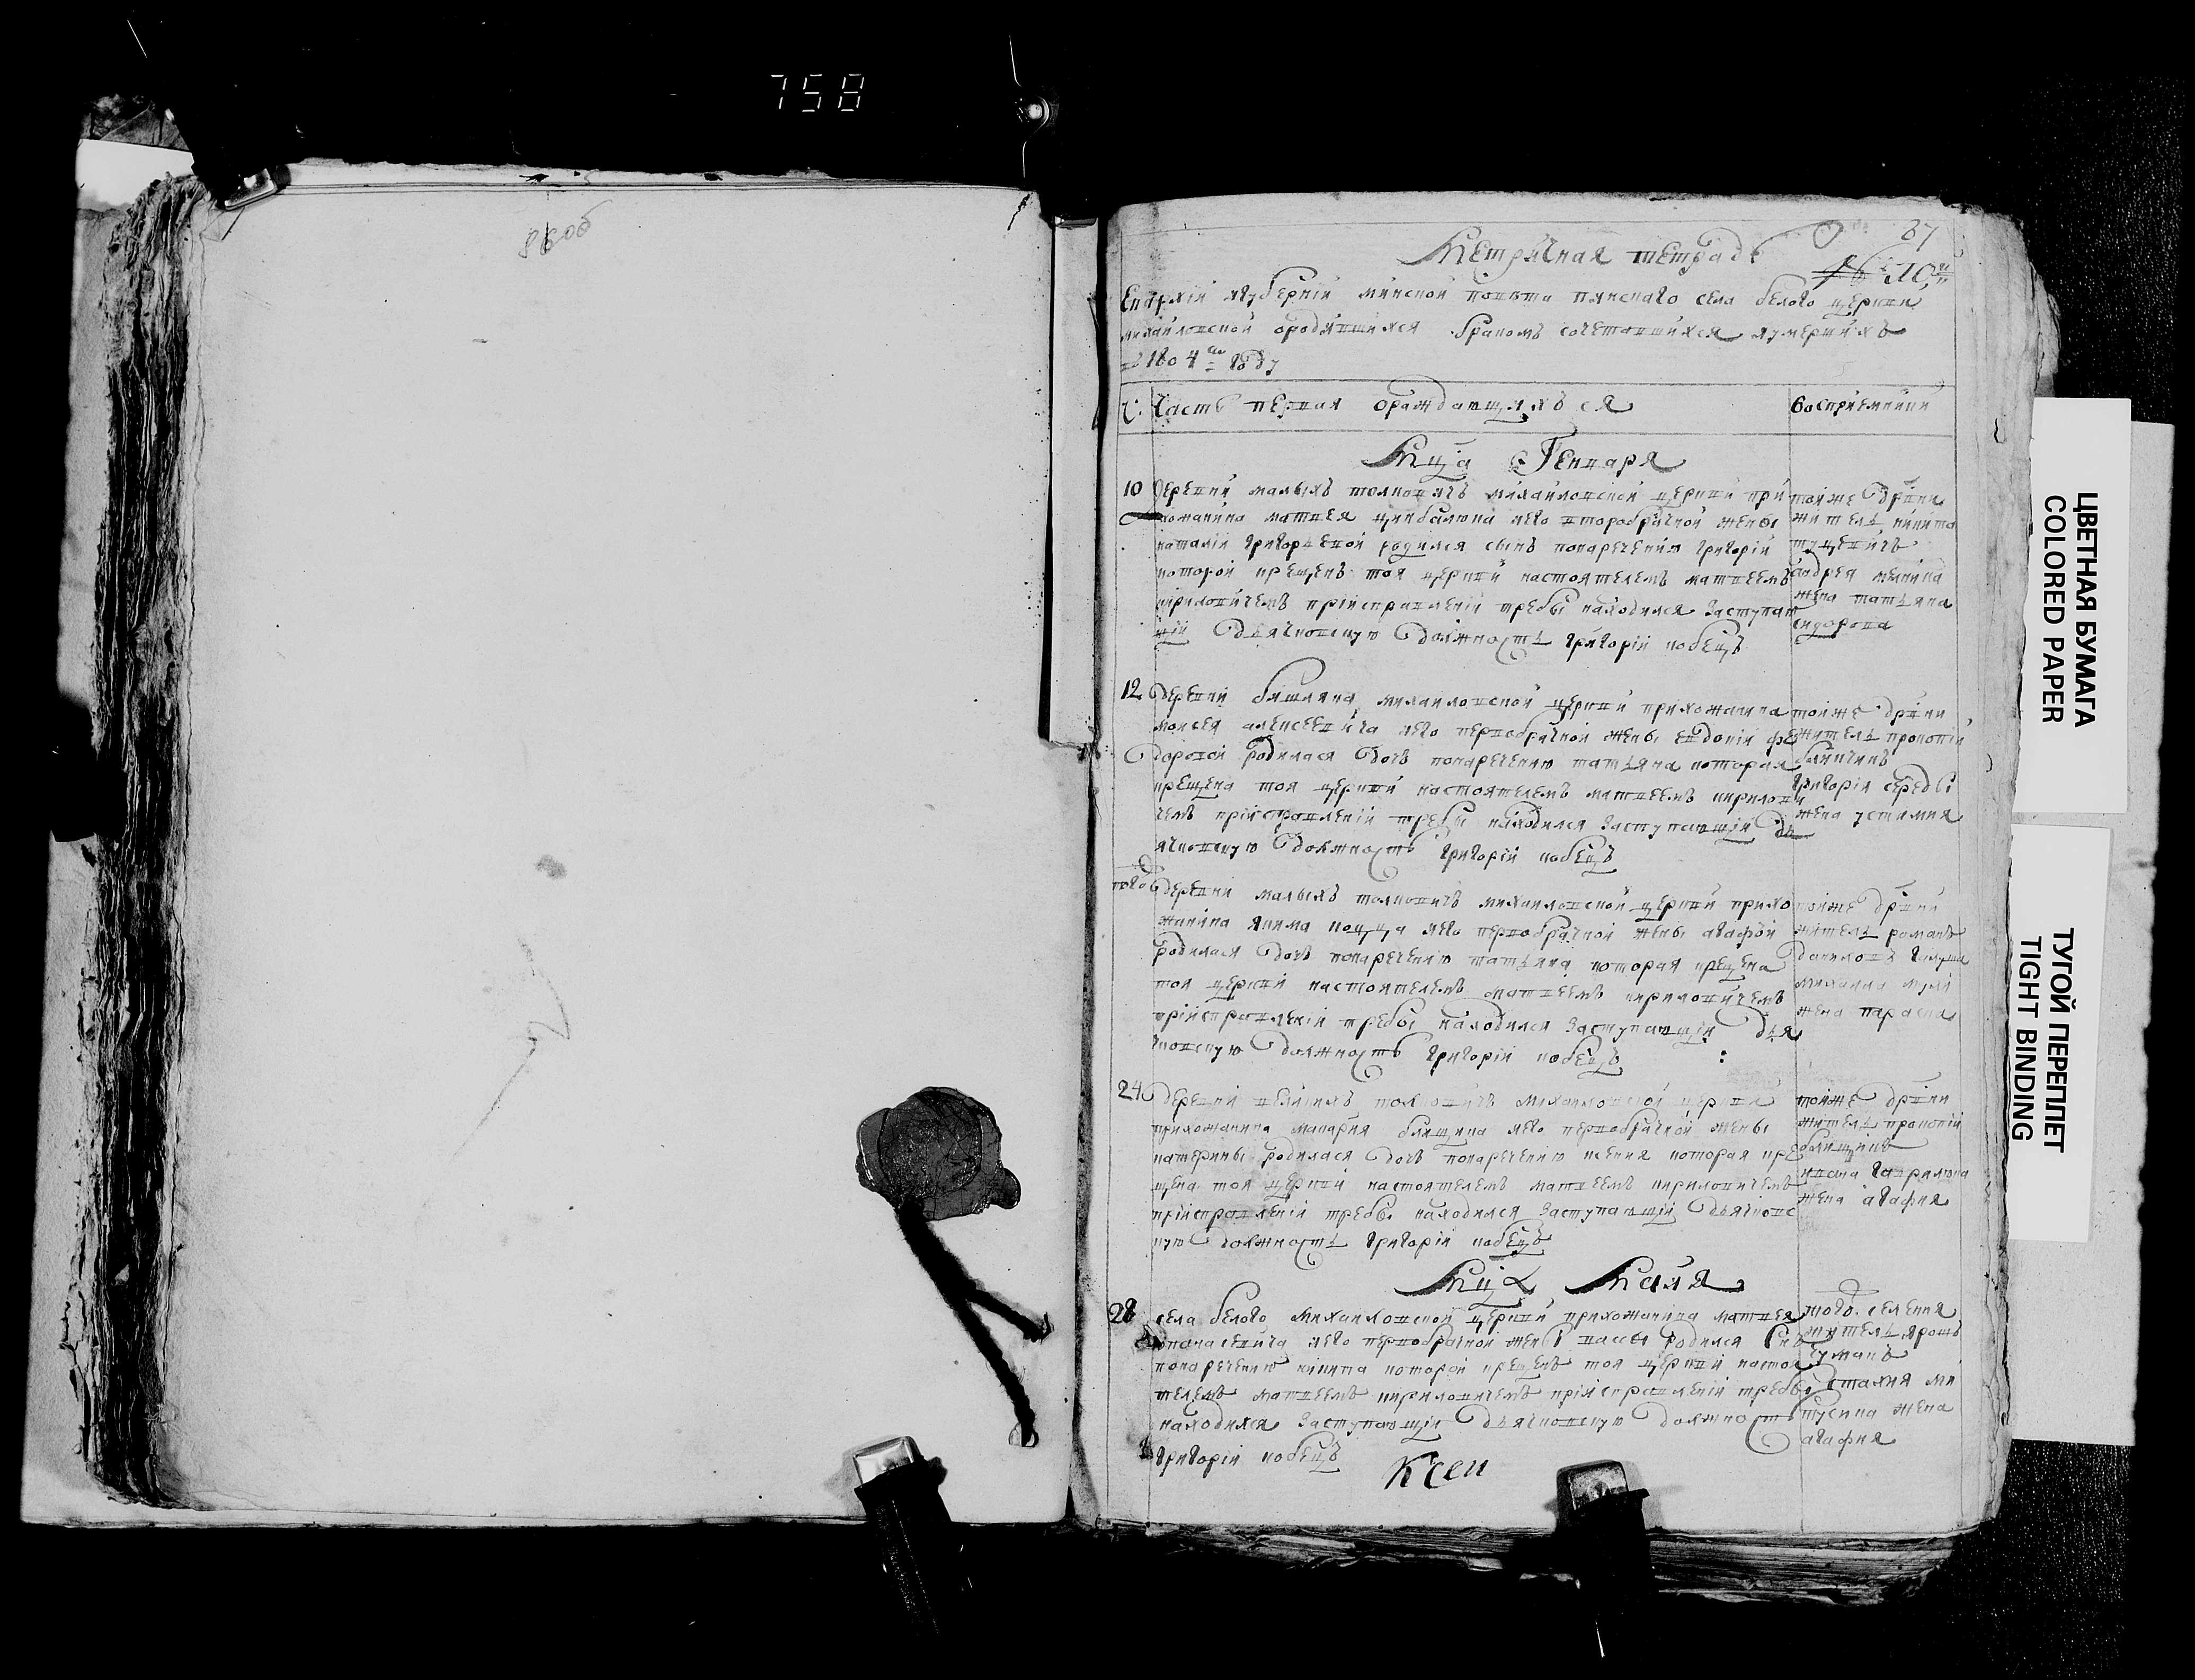 758
86об
87
Метричная тетрадь
10
Епархiи игубернiи минской повѣта пинскаго села белого церкви
михайловской ородившихся бракомъ сочетавшихся иумершихъ
1804 году
Ч. Часть первая ораждающихъся
Восприемники
Мца Генваря
10 Деревни малыхъ толковичъ михайловской церкви при
хожанина матвея цинбалюка иего второбрачной жены
наталiи григоревой родился сынъ понаречению григорiй
которой крещенъ тоя церкви настоятелемъ матвеемъ
кириловичемъ приисправленiи требы находился заступаю
щiй дьячковскую должность григорiй кобецъ
тойже држвни
житель никита
андрея
жена татьяна
сидорова
12 деревни михаиловской церкви прихожанина
моисея алексеевича иего первобрачной жены евдокiи фе
доровой родилася дочь понаречению татьяна которая
крещена тоя церкви настоятелемъ матвеемъ кирилови
чемъ приисправленiи требы находился заступающiй дь
ячковскую должность григорiй кобецъ
тойже држвни
житель прокопiй
григорiя середы
жена устимия
того деревни малыхъ толковичъ михаиловской церкви прихо
жанина якима иего первобрачной жены агафiи
родилася дочь понаречению татьяна которая крещена
тоя церкви настоятелемъ матвеемъ кириловичемъ
приисправленiи требы находился заступающiй дья
чковскую должность григорiй кобецъ :
тойже држвни
житель романъ
даниловъ
михаила
жена параска
24 деревни великихъ толковичъ михаиловской церкви
прихожанина макария блищика иего первобрачной жены
катерины родилася дочь понаречению ксения которая кре
щена тоя церкви настоятелемъ матвеемъ кириловичемъ
приисправленiи требы находился заступающiй дьячковс
кую должность григорiй кобецъ
тойже држвни
житель прокопiй
блищикъ
ивана гаврилюка
жена агафия
Мца Маия
28 села белого михаиловской церкви прихожанина матвея
иего первобрачной жены васы родился снъ
понаречению никита которой крещенъ тоя церкви настоя
телемъ матвеемъ кириловичемъ приисправленiи требы
находился заступающiй дьячковскую должность
григорiй кобецъ
того селения
житель
жена
агафия
Ксеи
ЦВЕТНАЯ БУМАГА
COLORED PAPER
ТУГОЙ ПЕРЕПЛЕТ
TIGHT BINDING